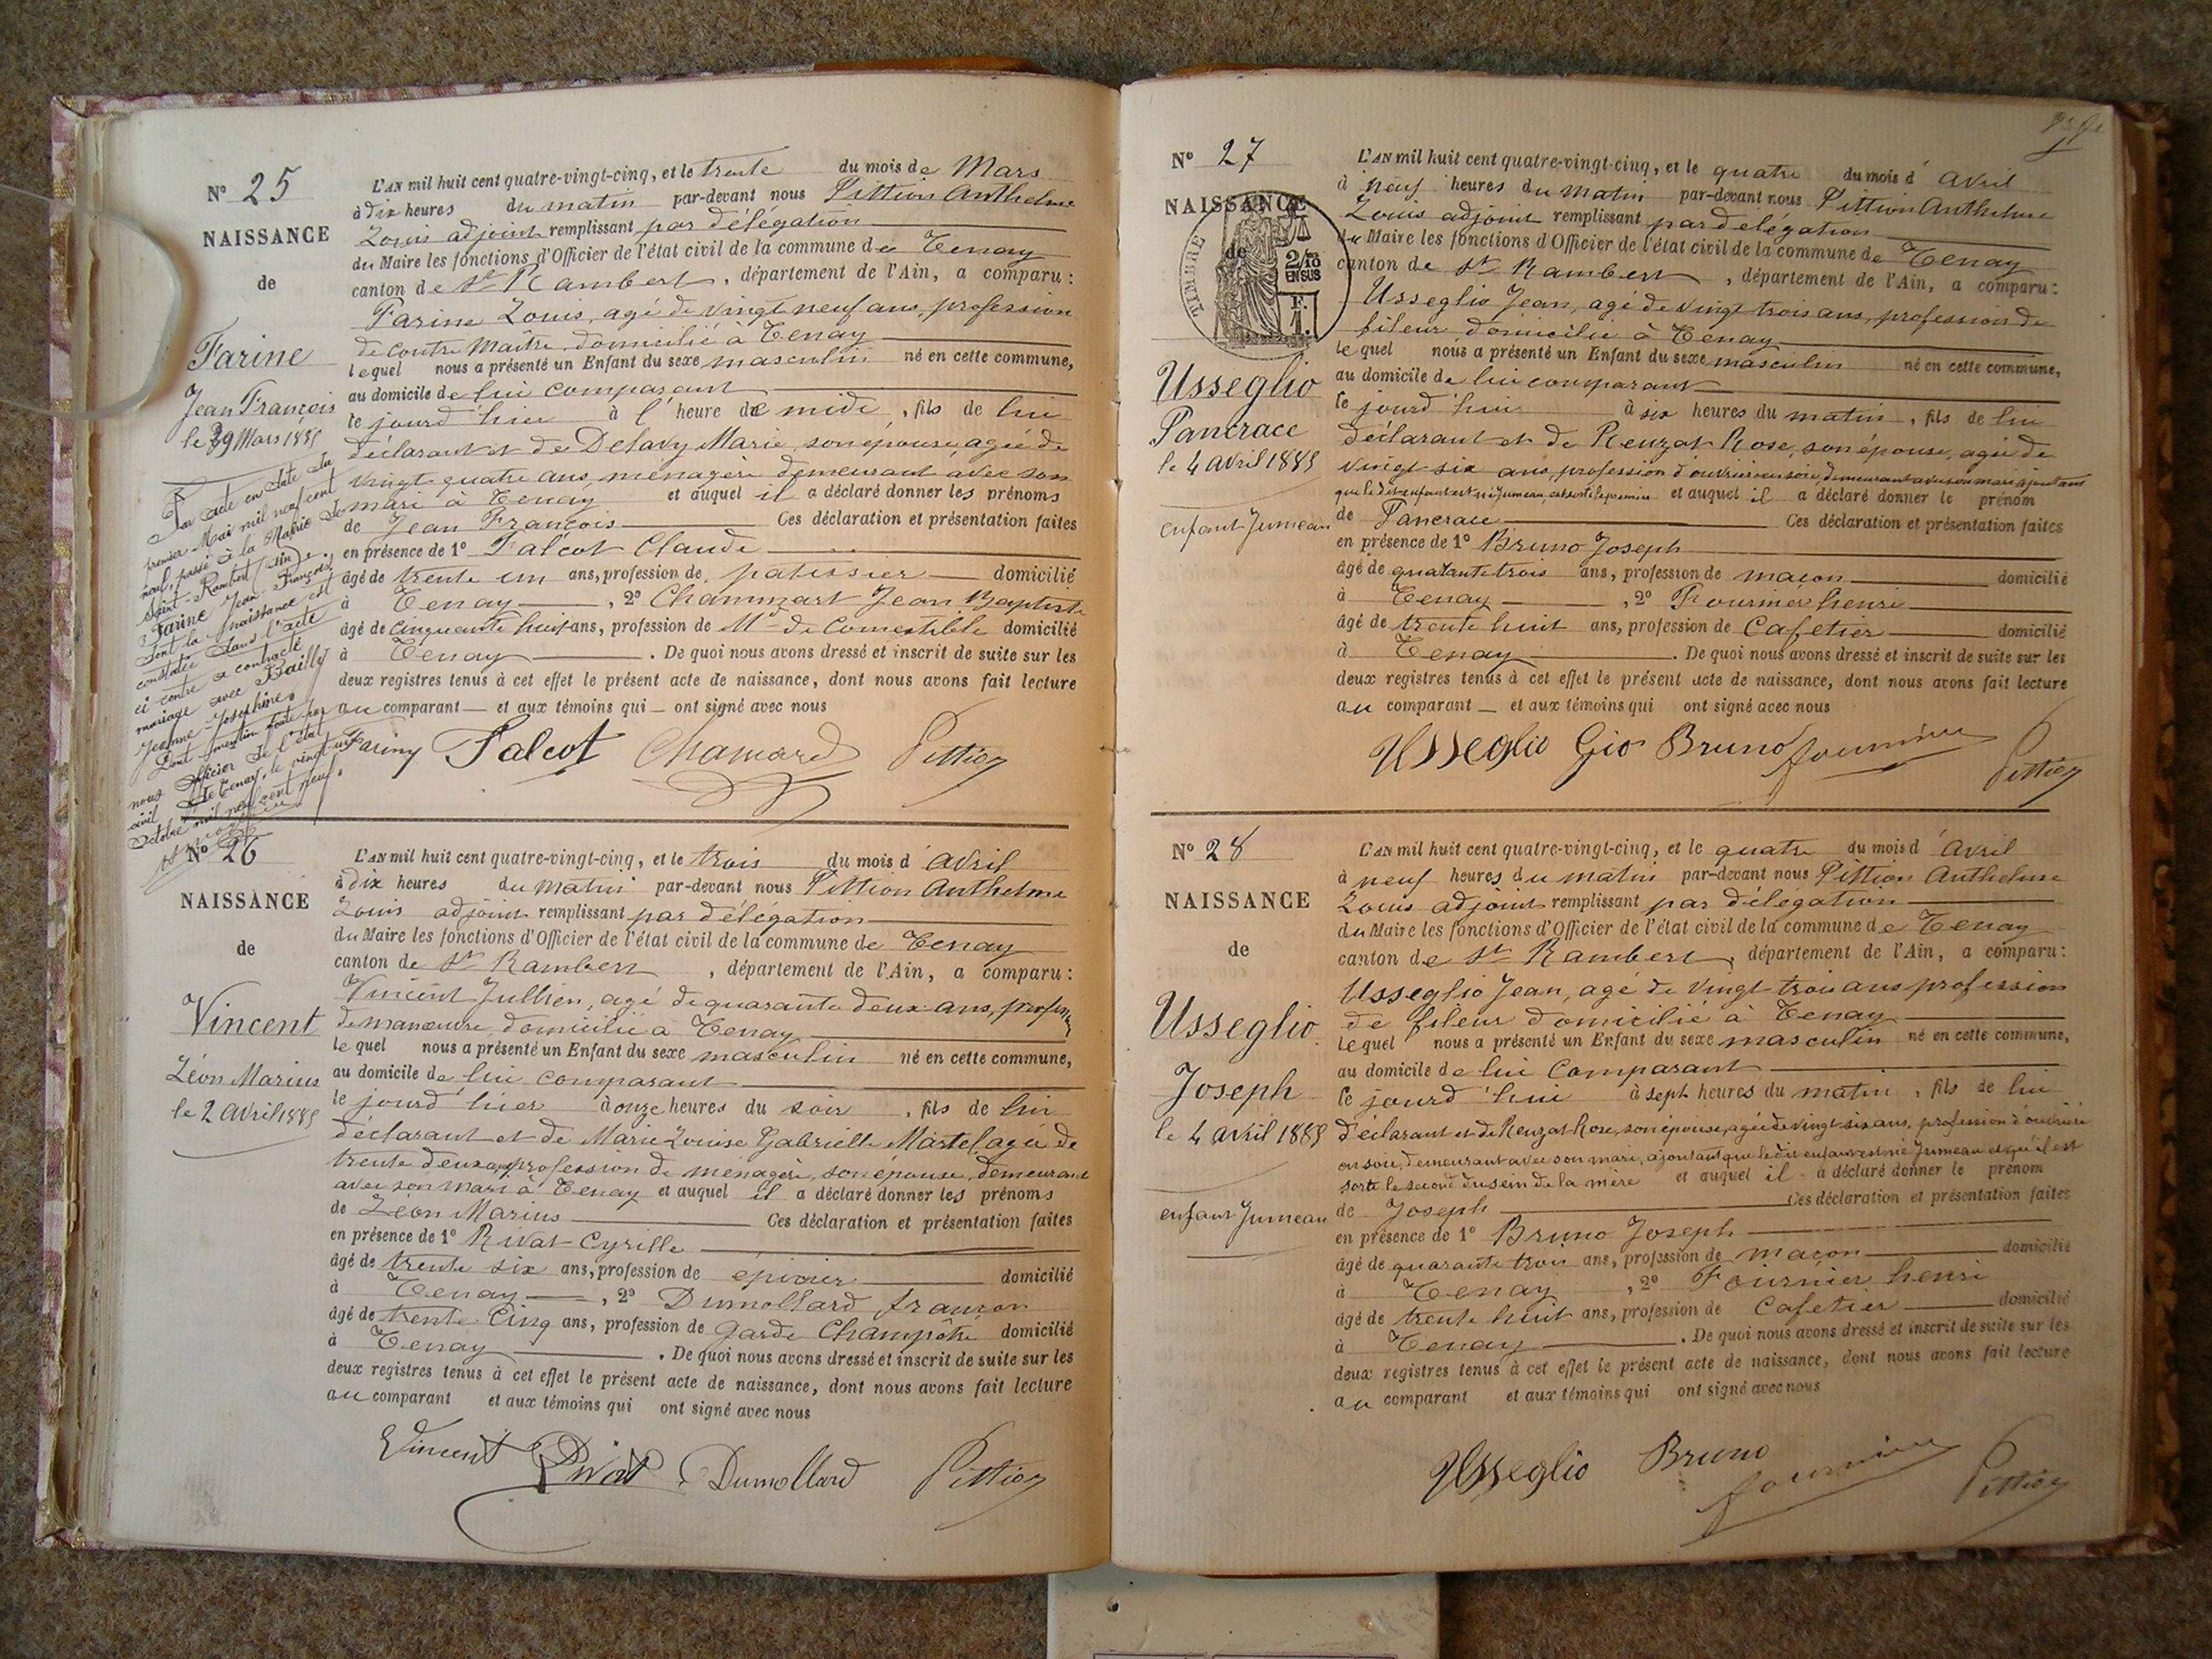 N° 25
NAISSANCE
de
Farine
Jean François
le 29 Mars 1885
Par acte en date du
premier Mai mil neuf cent
neuf, passé à la Mairie de
Saint-Rambert (Ain)
Farine Jean François
dont la naissance est
constatée dans l'acte
ci contre a contracté
mariage avec Bailly
Jeanne Josephine.
Dont mention faite par
nous Officier de l'état
civil de Tenay, le vingt
octobre mil neuf cent neuf.
L'AN mil huit cent quatre-vingt-cinq, et le trente du mois de Mars
à dix heures du matin par-devant nous Pittion Anthelme
Louis adjoint remplissant par délégation
du Maire les fonctions d'Officier de l'état civil de la commune de Tenay
canton de St Rambert, département de l'Ain, a comparu :
Farine Louis, agé de vingt neuf ans, profession
de contre Maître, domicilié à Tenay
lequel nous a présenté un Enfant du sexe masculin né en cette commune,
au domicile de lui comparant
le jourd'hier à l'heure de midi, fils de lui
déclarant et de Delavy Marie, son épouse, agée de
vingt quatre ans, ménagère demeurant avec son
mari à Tenay et auquel il a déclaré donner les prénoms
de Jean François Ces déclaration et présentation faites
en présence de 1° Falcot Claude
âgé de trente un ans, profession de patissier domicilié
à Tenay, 2° Chammart Jean Baptiste
âgé de cinquante huit ans, profession de Md de Comestible domicilié
à Tenay. De quoi nous avons dressé et inscrit de suite sur les
deux registres tenus à cet effet le présent acte de naissance, dont nous avons fait lecture
au comparant et aux témoins qui ont signé avec nous
Fariny Falcot Chamard Pittion
N° 26
NAISSANCE
de
Vincent
Léon Marius
le 2 avril 1885
L'AN mil huit cent quatre-vingt-cinq, et le trois du mois d'avril
à dix heures du matin par-devant nous Pittion Anthelme
Louis adjoint remplissant par délégation
du Maire les fonctions d'Officier de l'état civil de la commune de Tenay
canton de St Rambert, département de l'Ain, a comparu :
Vincent Jullien, agé de quarante deux ans, profession
de manœuvre, domicilié à Tenay
lequel nous a présenté un Enfant du sexe masculin né en cette commune,
au domicile de lui comparant
le jourd'hier à onze heures du soir, fils de lui
déclarant et de Marie Louise Gabrielle Martel, agée de
trente deux ans, profession de ménagère, son épouse, demeurant
avec son mari à Tenay et auquel il a déclaré donner les prénoms
de Léon Marius Ces déclaration et présentation faites
en présence de 1° Rivat Cyrille
âgé de trente six ans, profession de épicier domicilié
à Tenay, 2° Dumollard françon
âgé de trente Cinq ans, profession de garde Champêtre domicilié
à Tenay. De quoi nous avons dressé et inscrit de suite sur les
deux registres tenus à cet effet le présent acte de naissance, dont nous avons fait lecture
au comparant et aux témoins qui ont signé avec nous
Vincent Rivat Dumollard Pittion
N° 27
NAISSANCE
de
TIMBRE
2/10
EN SUS
F
1.
Usseglio
Pancrace
le 4 avril 1885
enfant Jumeau
L'AN mil huit cent quatre-vingt-cinq, et le quatre du mois d'avril
à neuf heures du matin par-devant nous Pittion Anthelme
Louis adjoint remplissant par délégation
du Maire les fonctions d'Officier de l'état civil de la commune de Tenay
canton de St Rambert, département de l'Ain, a comparu :
Usseglio Jean, agé de vingt trois ans, profession de
fileur domicilié à Tenay
lequel nous a présenté un Enfant du sexe masculin né en cette commune,
au domicile de lui comparant
le jourd'hui à six heures du matin, fils de lui
déclarant et de Reuzat Rose, son épouse, agée de
vingt six ans, profession d'ouvrière en soie, demeurant avec son mari, ajoutant
que le dit enfant est né Jumeau, est sorti le premier et auquel il a déclaré donner le prénom
de Pancrace Ces déclaration et présentation faites
en présence de 1° Bruno Joseph
âgé de quarante trois ans, profession de maçon domicilié
à Tenay, 2° Fournier henri
âgé de trente huit ans, profession de Cafetier domicilié
à Tenay. De quoi nous avons dressé et inscrit de suite sur les
deux registres tenus à cet effet le présent acte de naissance, dont nous avons fait lecture
au comparant et aux témoins qui ont signé avec nous
Usseglio Gio Bruno fournier Pittion
N° 28
NAISSANCE
de
Usseglio
Joseph
le 4 avril 1885
enfant Jumeau
L'AN mil huit cent quatre-vingt-cinq, et le quatre du mois d'avril
à neuf heures du matin par-devant nous Pittion Anthelme
Louis adjoint remplissant par délégation
du Maire les fonctions d'Officier de l'état civil de la commune de Tenay
canton de St Rambert, département de l'Ain, a comparu :
Usseglio Jean, agé de vingt trois ans profession
de fileur domicilié à Tenay
lequel nous a présenté un Enfant du sexe masculin né en cette commune,
au domicile de lui Comparant
le jourd'hui à sept heures du matin, fils de lui
déclarant et de Reuzat Rose, son épouse, agée de vingt six ans, profession d'ouvrière
en soie, demeurant avec son mari, ajoutant que le dit enfant est né Jumeau et qu'il est
sorti le second du sein de la mère et auquel il a déclaré donner le prénom
de Joseph Ces déclaration et présentation faites
en présence de 1° Bruno Joseph
âgé de quarante trois ans, profession de maçon domicilié
à Tenay, 2° Fournier henri
âgé de trente huit ans, profession de Cafetier domicilié
à Tenay. De quoi nous avons dressé et inscrit de suite sur les
deux registres tenus à cet effet le présent acte de naissance, dont nous avons fait lecture
au comparant et aux témoins qui ont signé avec nous
Usseglio Bruno fournier Pittion